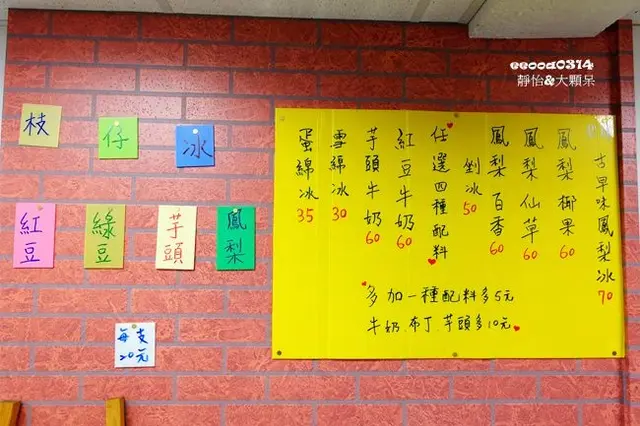 eeooa0314
靜怡&大顆呆
枝
仔
冰
紅豆
綠豆
芋頭
鳳梨
每支
20元
古早味鳳梨冰 70
鳳梨椰果 60
鳳梨仙草 60
鳳梨百香 60
剉冰 50
任選四種配料
紅豆牛奶 60
芋頭牛奶 60
雪綿冰 30
蛋綿冰 35
多加一種配料多5元
牛奶.布丁.芋頭多10元